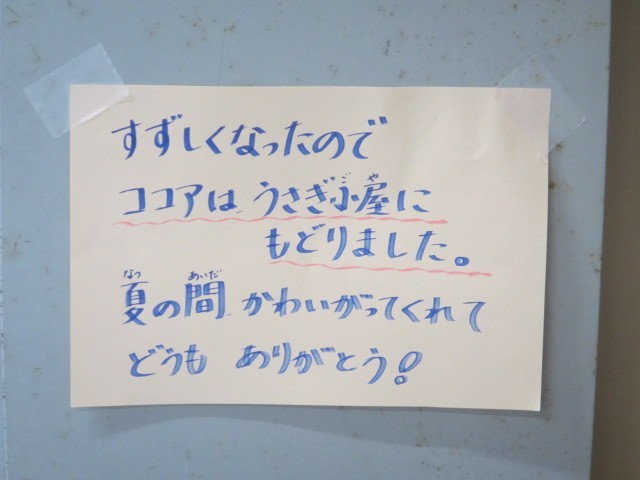 すずしくなったので
ココアは うさぎ小屋に
もどりました。
夏の間 かわいがってくれて
どうも ありがとう!